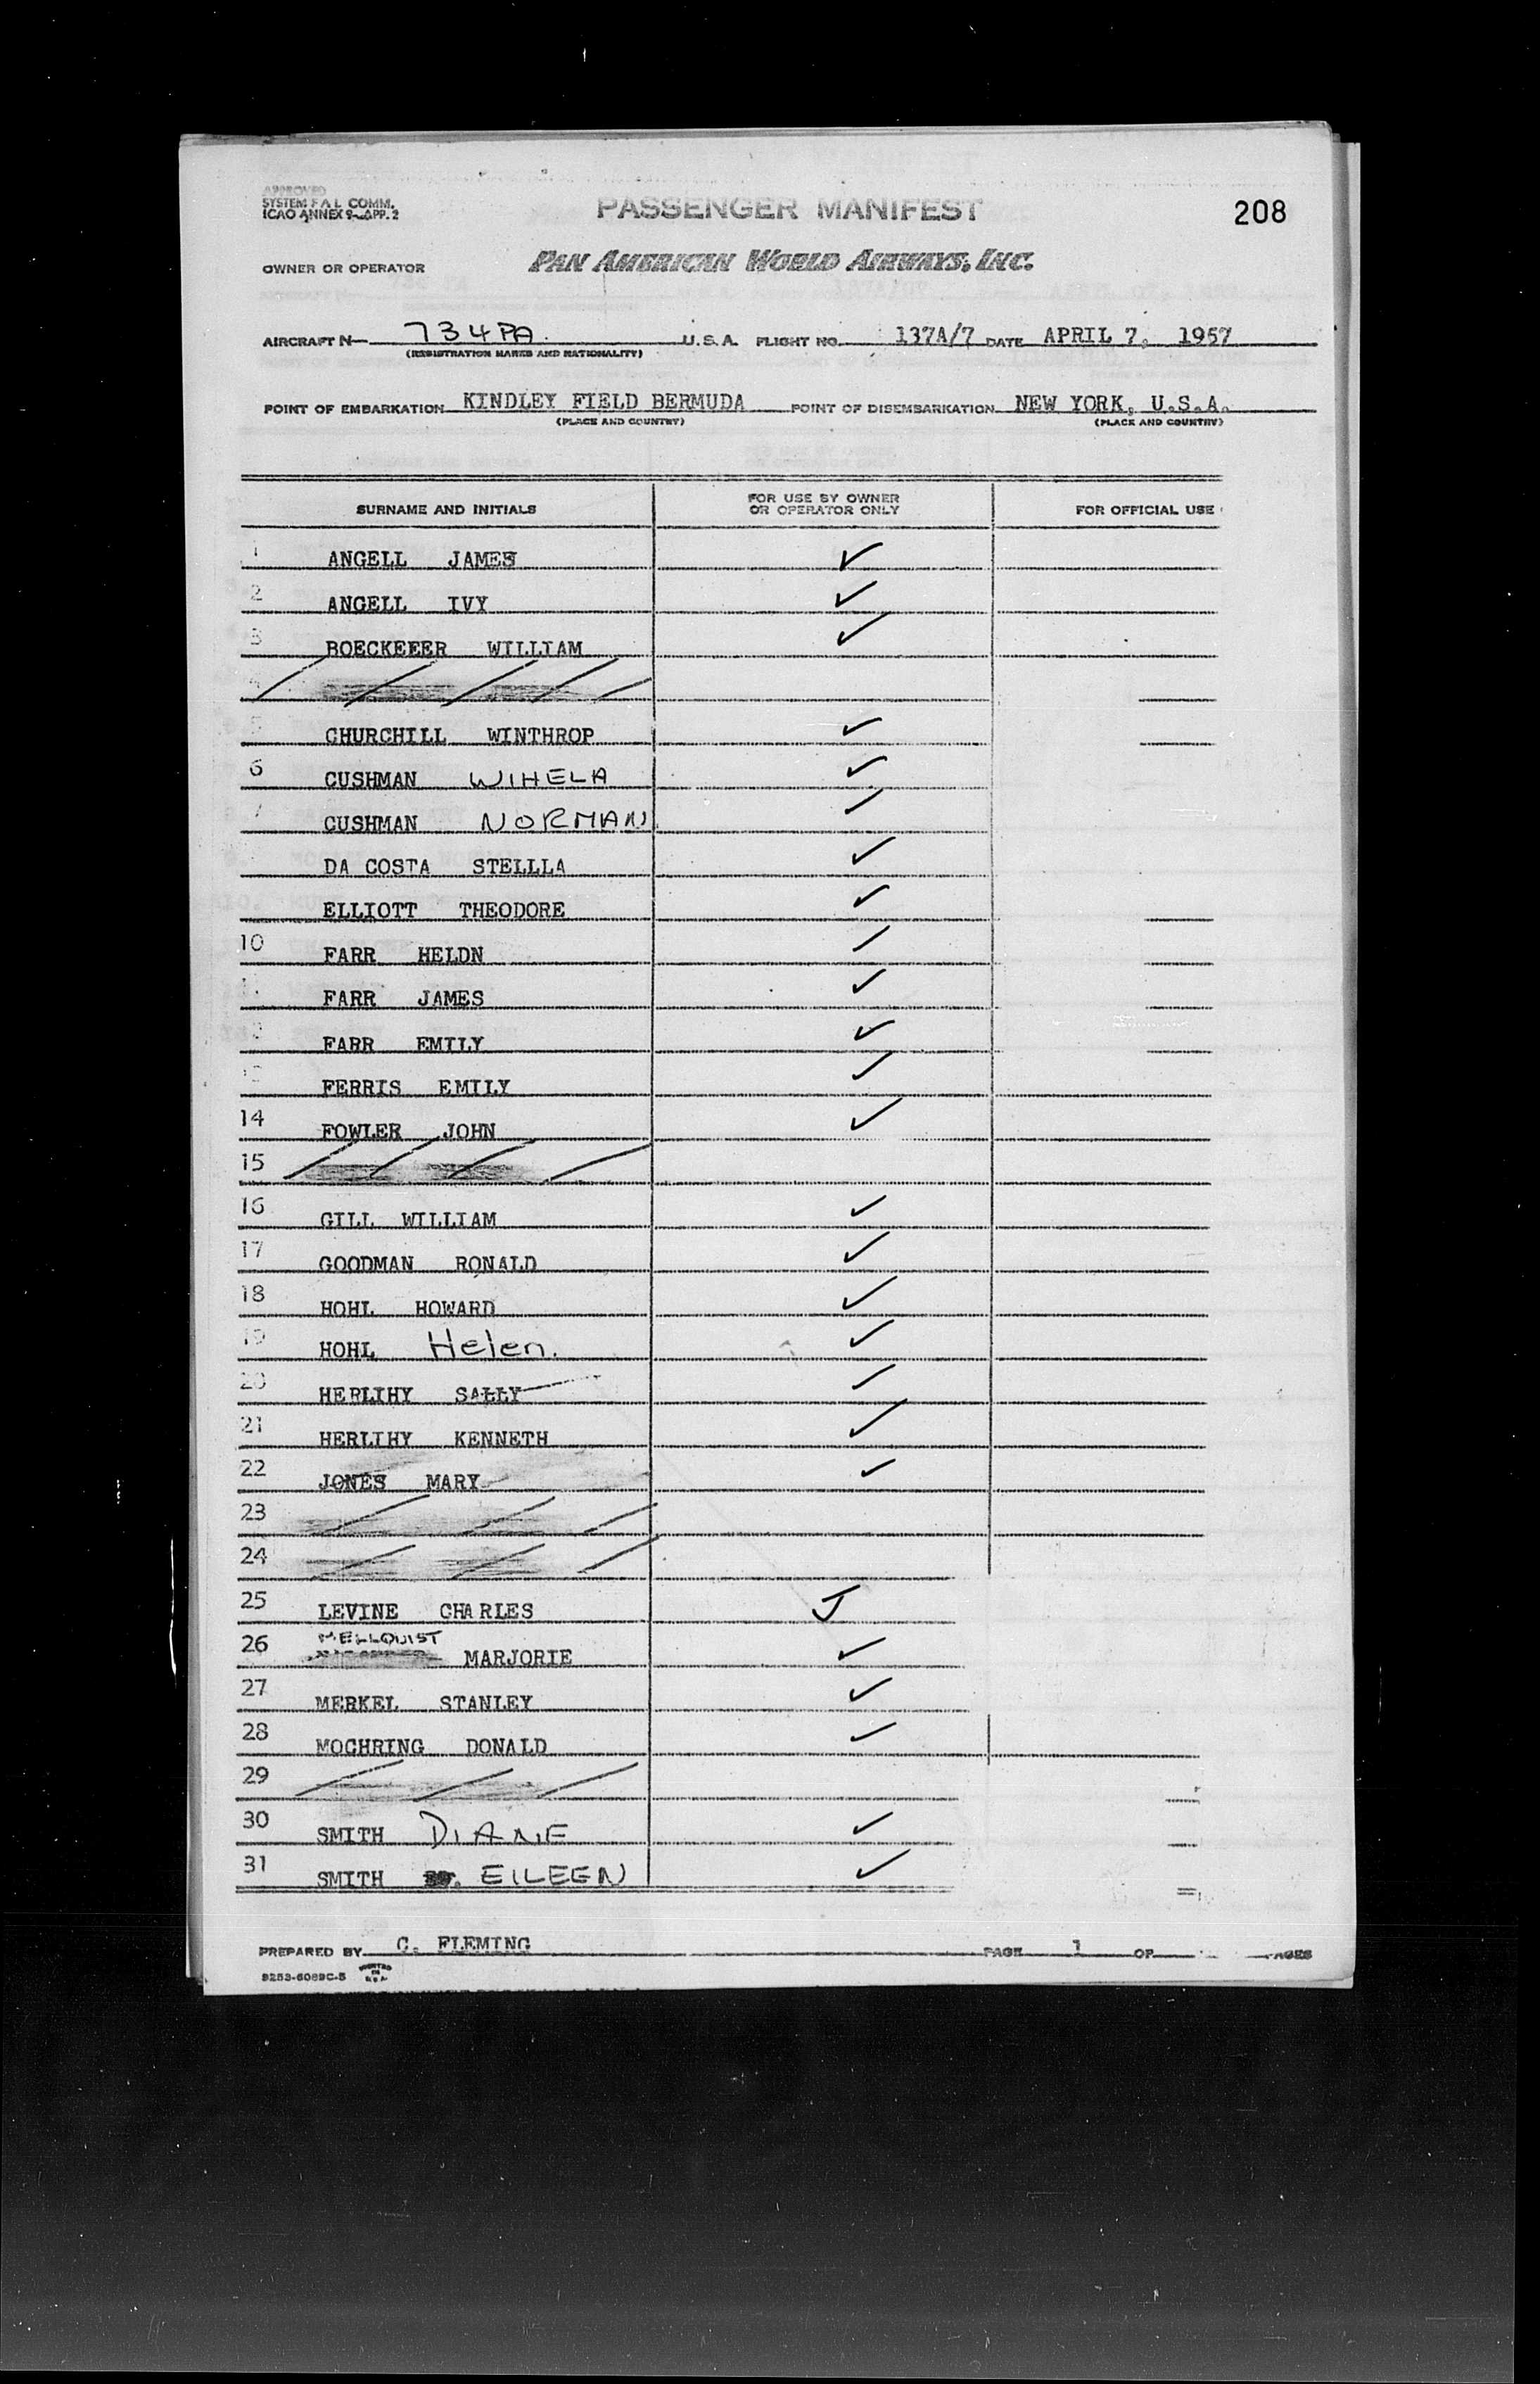 APPROVED
SYSTEM F A L COMM.
ICAO ANNEX 9-APP. 2
PASSENGER MANIFEST
208
OWNER OR OPERATOR
PAN AMERICAN WORLD AIRWAYS, INC.
AIRCRAFT N— 734PA U.S.A. FLIGHT NO. 137A/7 DATE APRIL 7, 1957
(REGISTRATION MARKS AND NATIONALITY)
POINT OF EMBARKATION KINDLEY FIELD BERMUDA POINT OF DISEMBARKATION NEW YORK, U.S.A.
(PLACE AND COUNTRY) (PLACE AND COUNTRY)
SURNAME AND INITIALS
FOR USE BY OWNER
OR OPERATOR ONLY
FOR OFFICIAL USE
1 ANGELL JAMES ✓
2 ANGELL IVY ✓
3 BOECKEEER WILLIAM ✓
4
5 CHURCHILL WINTHROP ✓
6 CUSHMAN WIHELA ✓
7 CUSHMAN NORMAN ✓
DA COSTA STELLLA ✓
ELLIOTT THEODORE ✓
10 FARR HELDN ✓
FARR JAMES ✓
FARR EMILY ✓
FERRIS EMILY ✓
14 FOWLER JOHN ✓
15
16 GILL WILLIAM ✓
17 GOODMAN RONALD ✓
18 HOHL HOWARD ✓
19 HOHL Helen. ✓
20 HERLIHY SALLY ✓
21 HERLIHY KENNETH ✓
22 JONES MARY ✓
23
24
25 LEVINE CHARLES ✓
26 MELLQUIST MARJORIE ✓
27 MERKEL STANLEY ✓
28 MOCHRING DONALD ✓
29
30 SMITH DIANE ✓
31 SMITH EILEEN ✓
PREPARED BY C. FLEMING PAGE 1 OF PAGES
9253-6089C-5 PRINTED IN U.S.A.